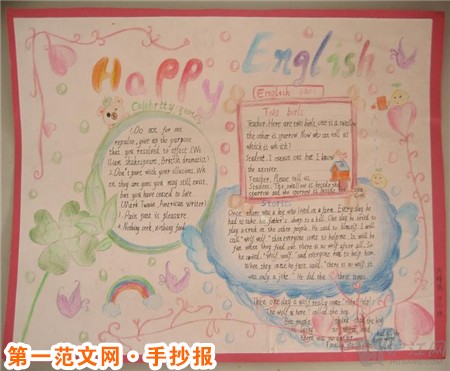 Happy English
Celebrity quotes
1.Do not, for one
repulse, give up the purpose
that you resolved to effect.(Wi
lliam Shakespeare, British dramatist)
2.Don't part with your illusions. Wh
en they are gone you may still exist,
but you have ceased to live
(Mark Twain, American writer)
3.Pain past is pleasure.
4.Nothing seek, nothing find.
English
Two birds
Teacher: Here are two birds, one is a swallow
the other is sparrow. Now who can tell us
which is which?
Student: I cannot but I know
the answer.
Teacher: Please tell us.
Student: The swallow is beside the
sparrow and the sparrow is beside the
Stories
Once there was a boy who lived on a farm. Every day he
had to take his father's sheep to a hill. One day he
play a trick on the other people. He said to himself, I will
call "wolf, wolf", then everyone come to help me. It will be
fun when they find out there is no wolf after all. So
he cried "Wolf, wolf" and everyone ran to help him.
When they came he just said, "there is no wolf. It
was only a joke." He did the three times.
Then one day a wolf really came
The wolf is here" called the boy
第一范文网·手抄报